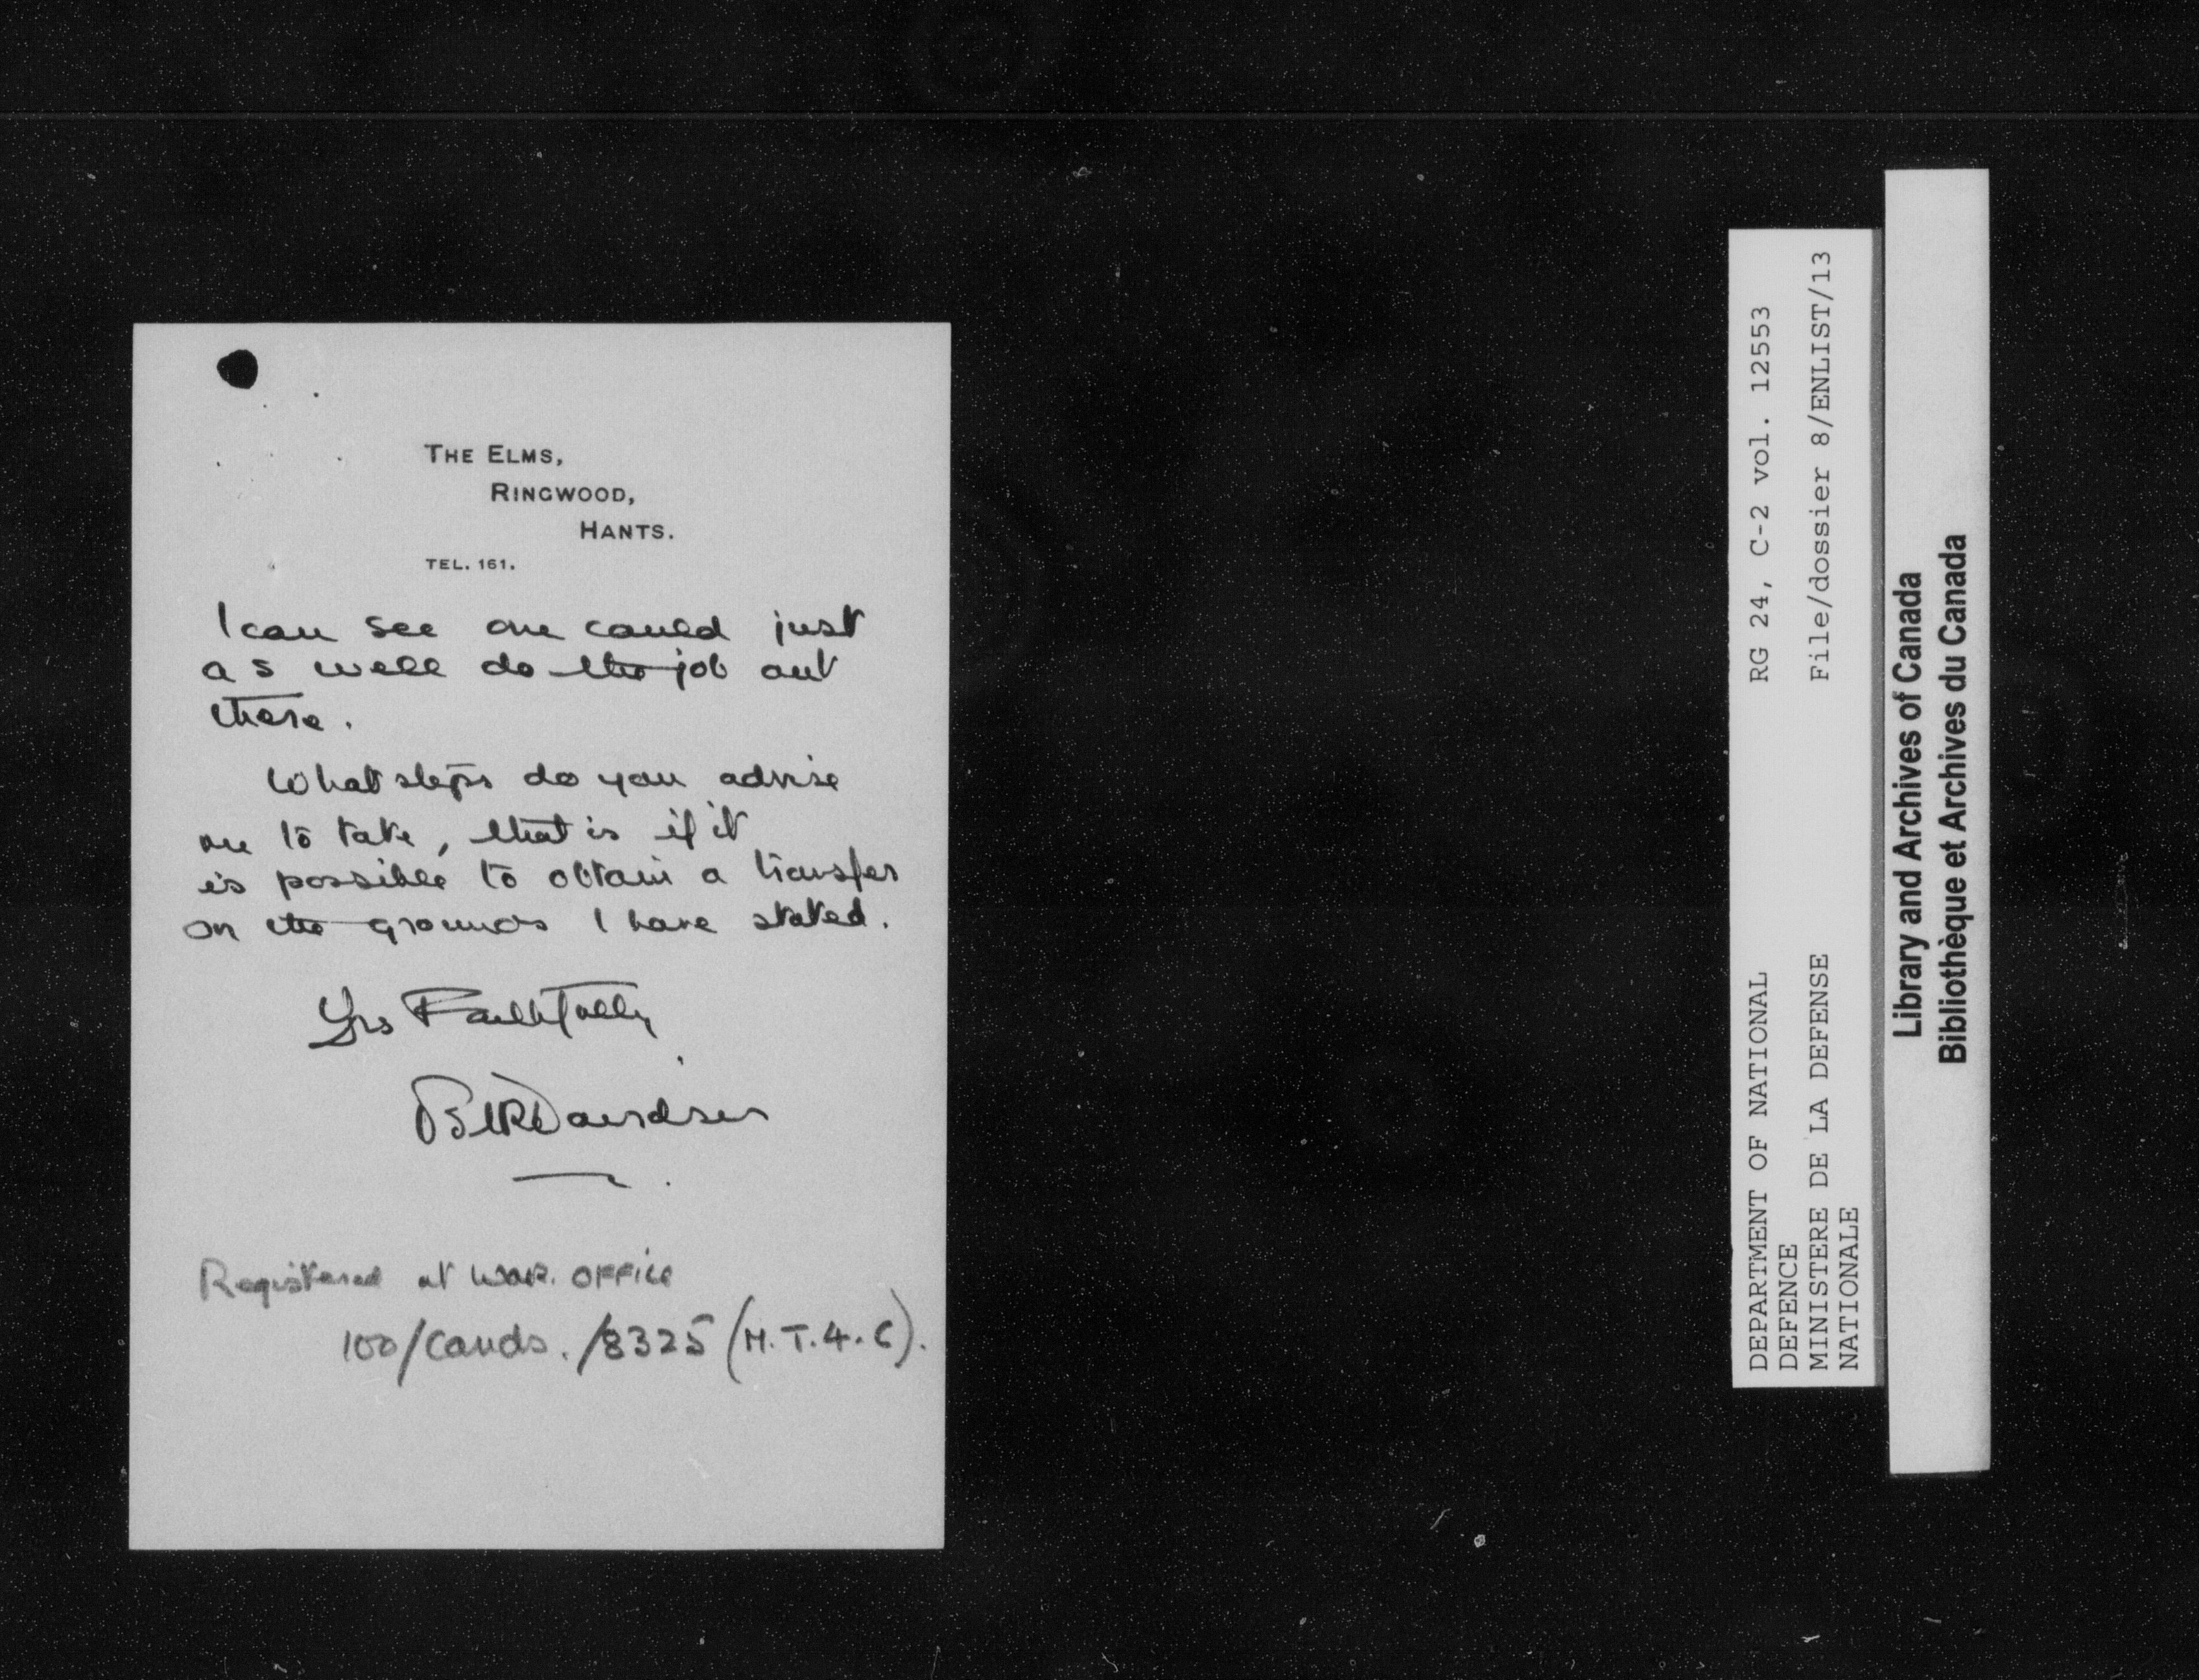 THE ELMS,
RINGWOOD,
HANTS.
TEL. 161.
I can see one could just
as well do the job out
there.
What steps do you advise
me to take, that is if it
is possible to obtain a transfer
on the grounds I have stated.
Yrs Faithfully
Davidson
Registered at WAR. OFFICE
100/Cands./8325 (M.T.4.C).
RG 24, C-2 vol. 12553
File/dossier 8/ENLIST/13
DEPARTMENT OF NATIONAL
DEFENCE
MINISTERE DE LA DEFENSE
NATIONALE
Library and Archives of Canada
Bibliothèque et Archives du Canada